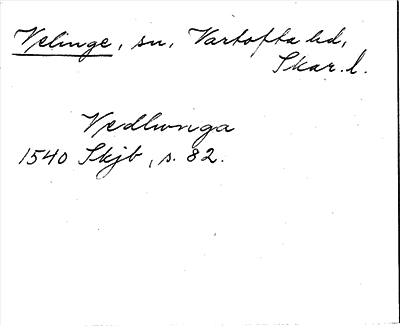 Velinge, sn, Vartofta hd,
Skar. l.
Vedhunga
1540 Skjb, s. 82.